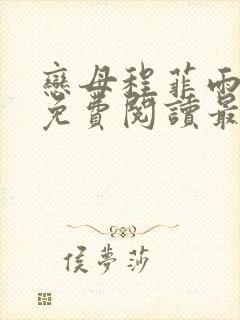 戀母程菲雨
免費閱讀最
侯夢莎